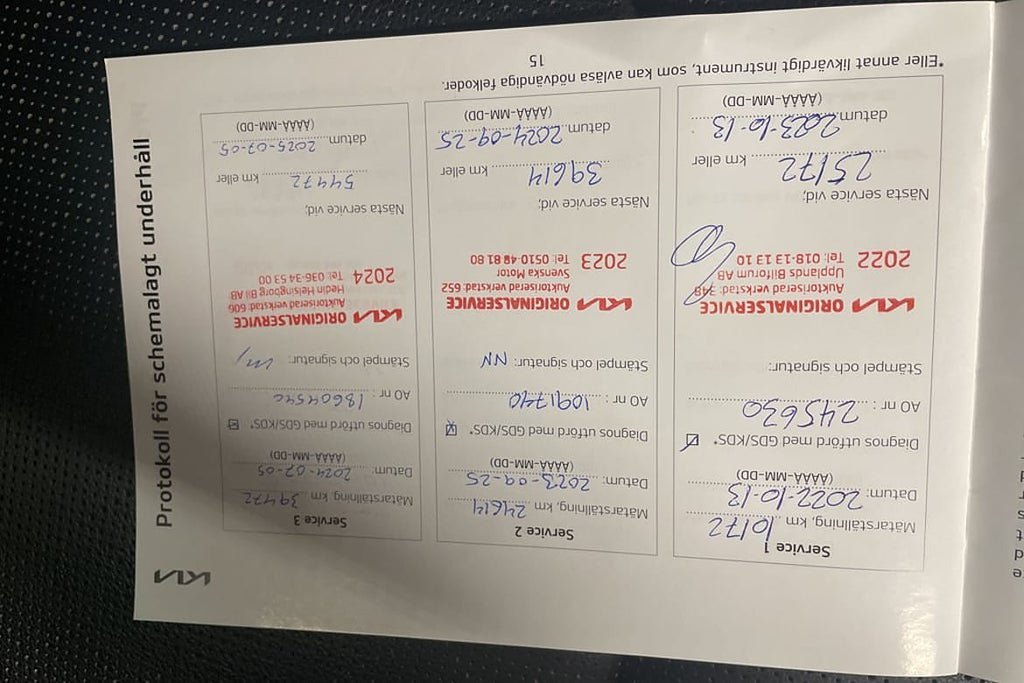 KIA
Protokoll för schemalagt underhåll
Service 1
Mätarställning, km 10172
Datum: 2022-10-13
(ÅÅÅÅ-MM-DD)
Diagnos utförd med GDS/KDS*
AO nr : 245630
Stämpel och signatur:
KIA ORIGINALSERVICE
Auktoriserad verkstad: 348
Upplands Bilforum AB
2022 Tel: 018-13 13 10
Nästa service vid;
25172 km eller
datum 2023-10-13
(ÅÅÅÅ-MM-DD)
Service 2
Mätarställning, km 24614
Datum: 2023-09-25
(ÅÅÅÅ-MM-DD)
Diagnos utförd med GDS/KDS*
AO nr : 1091740
Stämpel och signatur: NN
KIA ORIGINALSERVICE
Auktoriserad verkstad: 652
Svenska Motor
2023 Tel: 0510-48 81 80
Nästa service vid;
39614 km eller
datum 2024-09-25
(ÅÅÅÅ-MM-DD)
Service 3
Mätarställning, km 39472
Datum: 2024-07-05
(ÅÅÅÅ-MM-DD)
Diagnos utförd med GDS/KDS*
AO nr : 18604540
Stämpel och signatur:
KIA ORIGINALSERVICE
Auktoriserad verkstad: 606
Hedin Helsingborg Bil AB
2024 Tel: 036-34 53 00
Nästa service vid;
54472 km eller
datum 2025-07-05
(ÅÅÅÅ-MM-DD)
*Eller annat likvärdigt instrument, som kan avläsa nödvändiga felkoder.
15